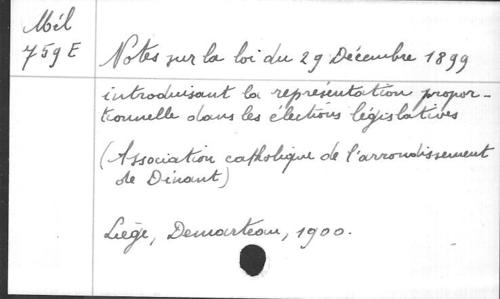 Mél
759E
Notes sur la loi du 29 Décembre 1899
introduisant la représentation propor-
tionnelle dans les élections législatives
(Association catholique de l'arrondissement
de Dinant)
Liège, Demarteau, 1900.